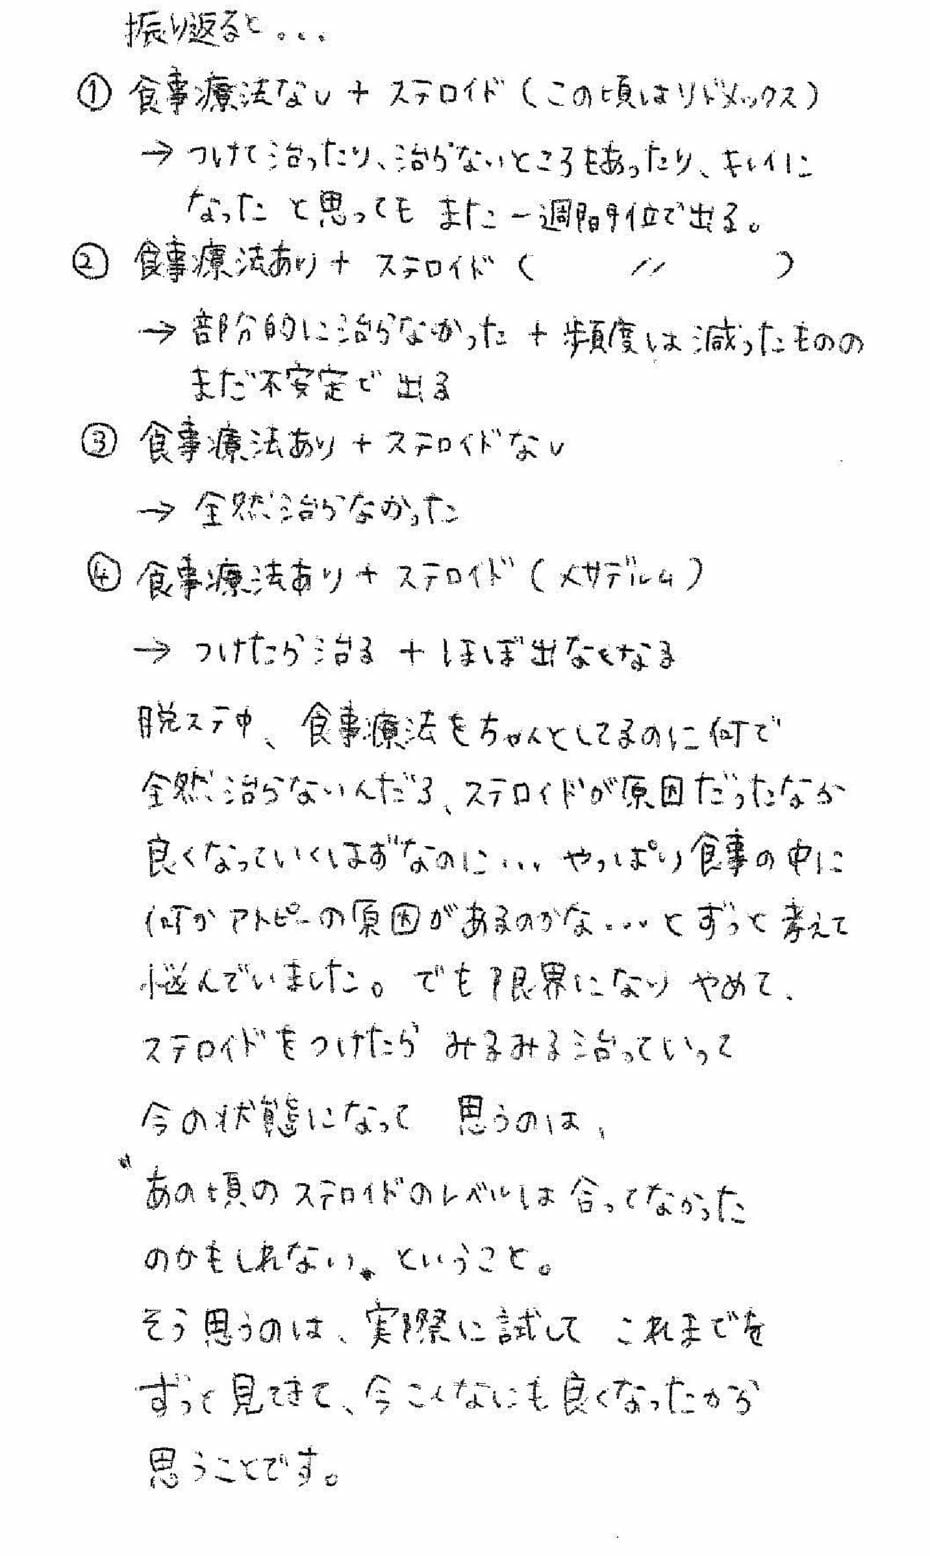 振り返ると...
① 食事療法なし + ステロイド (この頃はリドメックス)
→ つけて治ったり、治らないところもあったり、キレイに
なったと思ってもまた一週間単位で出る。
② 食事療法あり + ステロイド ( 〃 )
→ 部分的に治らなかった + 頻度は減ったものの
まだ不安定で出る
③ 食事療法あり + ステロイドなし
→ 全然治らなかった
④ 食事療法あり + ステロイド (メサデルム)
→ つけたら治る + ほぼ出なくなる
脱ステ中、食事療法をちゃんとしてるのに何で
全然治らないんだろ、ステロイドが原因だったなか
良くなっていくはずなのに... やっぱり食事の中に
何かアトピーの原因があるのかな...とずっと考えて
悩んでいました。でも限界になりやめて、
ステロイドをつけたらみるみる治っていって
今の状態になって 思うのは、
"あの頃のステロイドのレベルは合ってなかった
のかもしれない"ということ。
そう思うのは、実際に試して これまでを
ずっと見てきて、今こんなにも良くなったから
思うことです。